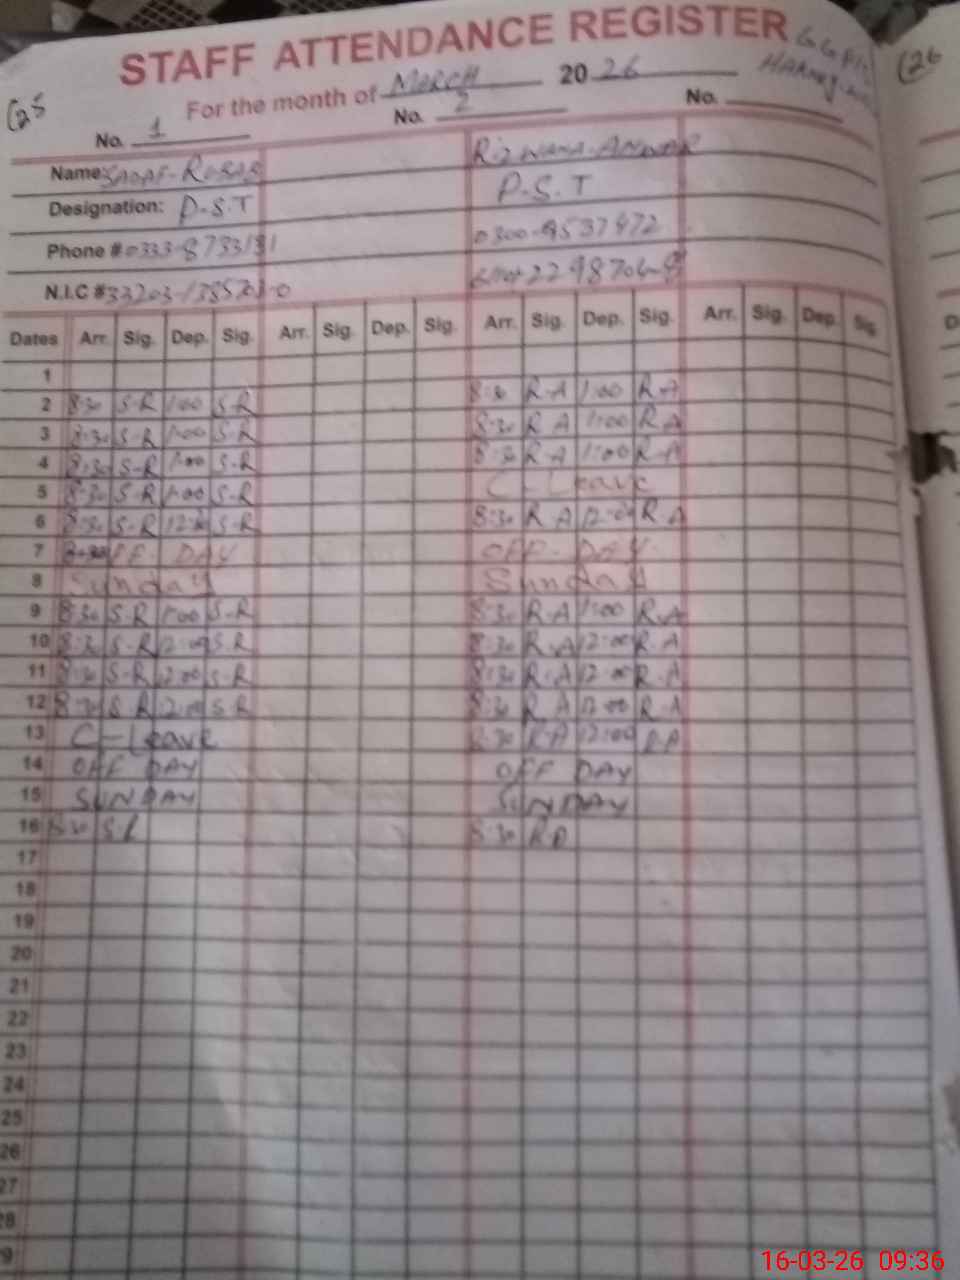 STAFF ATTENDANCE REGISTER
For the month of MARCH 2026
No. 1 No. 2 No.
Name: SADAF-RUBAB Rizwana-Anwar
Designation: P.S.T P.S.T
Phone # 0333-8733181 0300-9537972
N.I.C #
Dates Arr. Sig. Dep. Sig. Arr. Sig. Dep. Sig. Arr. Sig. Dep. Sig. Arr. Sig. Dep. Sig.
1
2 8:30 S-R 1:00 S-R 8:30 R-A 1:00 R A
3 8:30 S-R 1:00 S-R 8:30 R A 1:00 R A
4 8:30 S-R 1:00 S-R 8:30 R-A 1:00 R-A
5 8:30 S-R 1:00 S-R C-Leave
6 8:30 S-R 12:00 S-R 8:30 R A 12:00 R A
7 OFF DAY OFF-DAY
8 Sunday Sunday
9 8:30 S-R 1:00 S-R 8:30 R-A 1:00 R.A
10 8:30 S-R 12:00 S.R 8:30 R.A 12:00 R.A
11 8:30 S-R 12:00 S-R 8:30 R.A 12:00 R.A
12 8:30 S R 12:00 S R 8:30 R A 12:00 R-A
13 C-Leave 8:30 R-A 12:00 R A
14 OFF DAY OFF DAY
15 SUNDAY SUNDAY
16 8:30 S R 8:30 R A
17
18
19
20
21
22
23
24
25
26
27
28
29
16-03-26 09:36